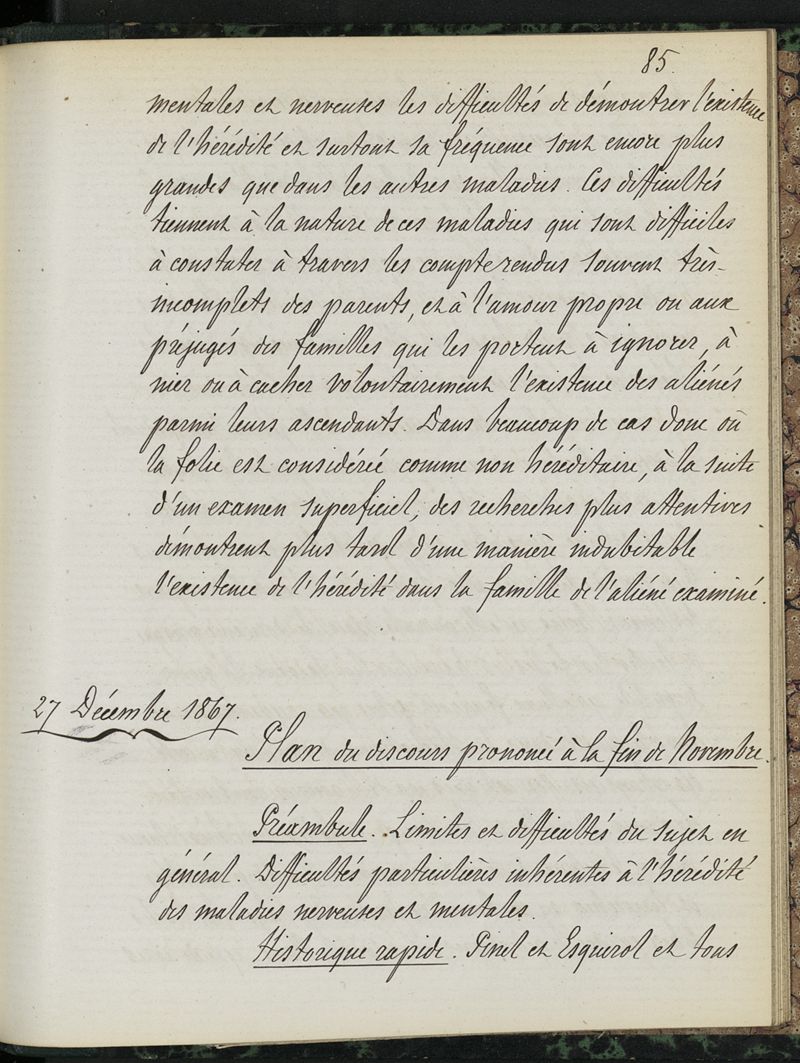 85.
mentales et nerveuses les difficultés de démontrer l'existence
de l'hérédité et surtout sa fréquence sont encore plus
grandes que dans les autres maladies. Ces difficultés
tiennent à la nature de ces maladies qui sont difficiles
à constater à travers les compterendus souvent très-
incomplets des parents, et à l'amour propre ou aux
préjugés des familles qui les portent à ignorer, à
nier ou à cacher volontairement l'existence des aliénés
parmi leurs ascendants. Dans beaucoup de cas donc où
la folie est considérée comme non héréditaire, à la suite
d'un examen superficiel, des recherches plus attentives
démontrent plus tard d'une manière indubitable
l'existence de l'hérédité dans la famille de l'aliéné examiné.
27 Décembre 1867.
Plan du discours prononcé à la fin de Novembre.
Préambule. Limites et difficultés du sujet en
général. Difficultés particulières inhérentes à l'hérédité
des maladies nerveuses et mentales.
Historique rapide. Pinel et Esquirol et tous